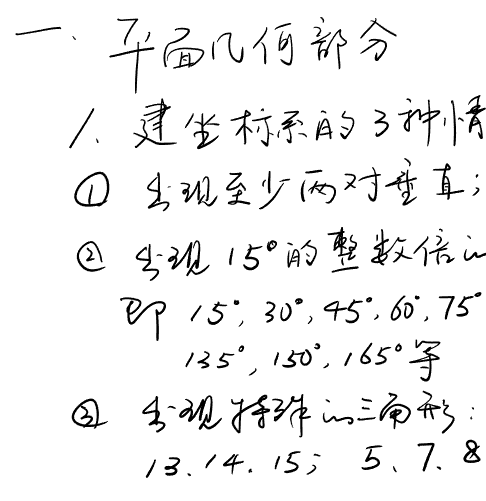 一、平面几何部分
1、建坐标系的3种情
① 出现至少两对垂直;
② 出现15°的整数倍的
即 15°,30°,45°,60°,75°
135°,150°,165°等
③ 出现特殊的三角形:
13.14.15; 5、7、8